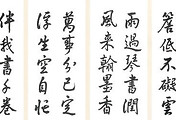 簷低不礙雲
雨過琴書潤
風來翰墨香
萬事分已定
浮生空自忙
伴我書千卷